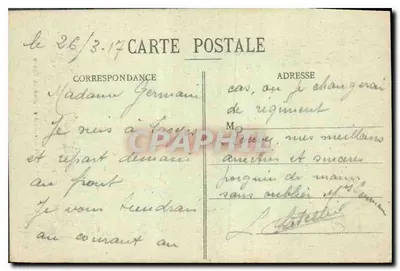 le 26/3-17
CARTE POSTALE
CORRESPONDANCE
Madame Germain
Je suis à Troyes
et repart demain
au front
Je vous tiendrai
au courant au
ADRESSE
cas, ou je changerai
de regiment
M
mes meilleurs
amities et sinceres
sans oublier Mr Germain
L.
CPAPHIL